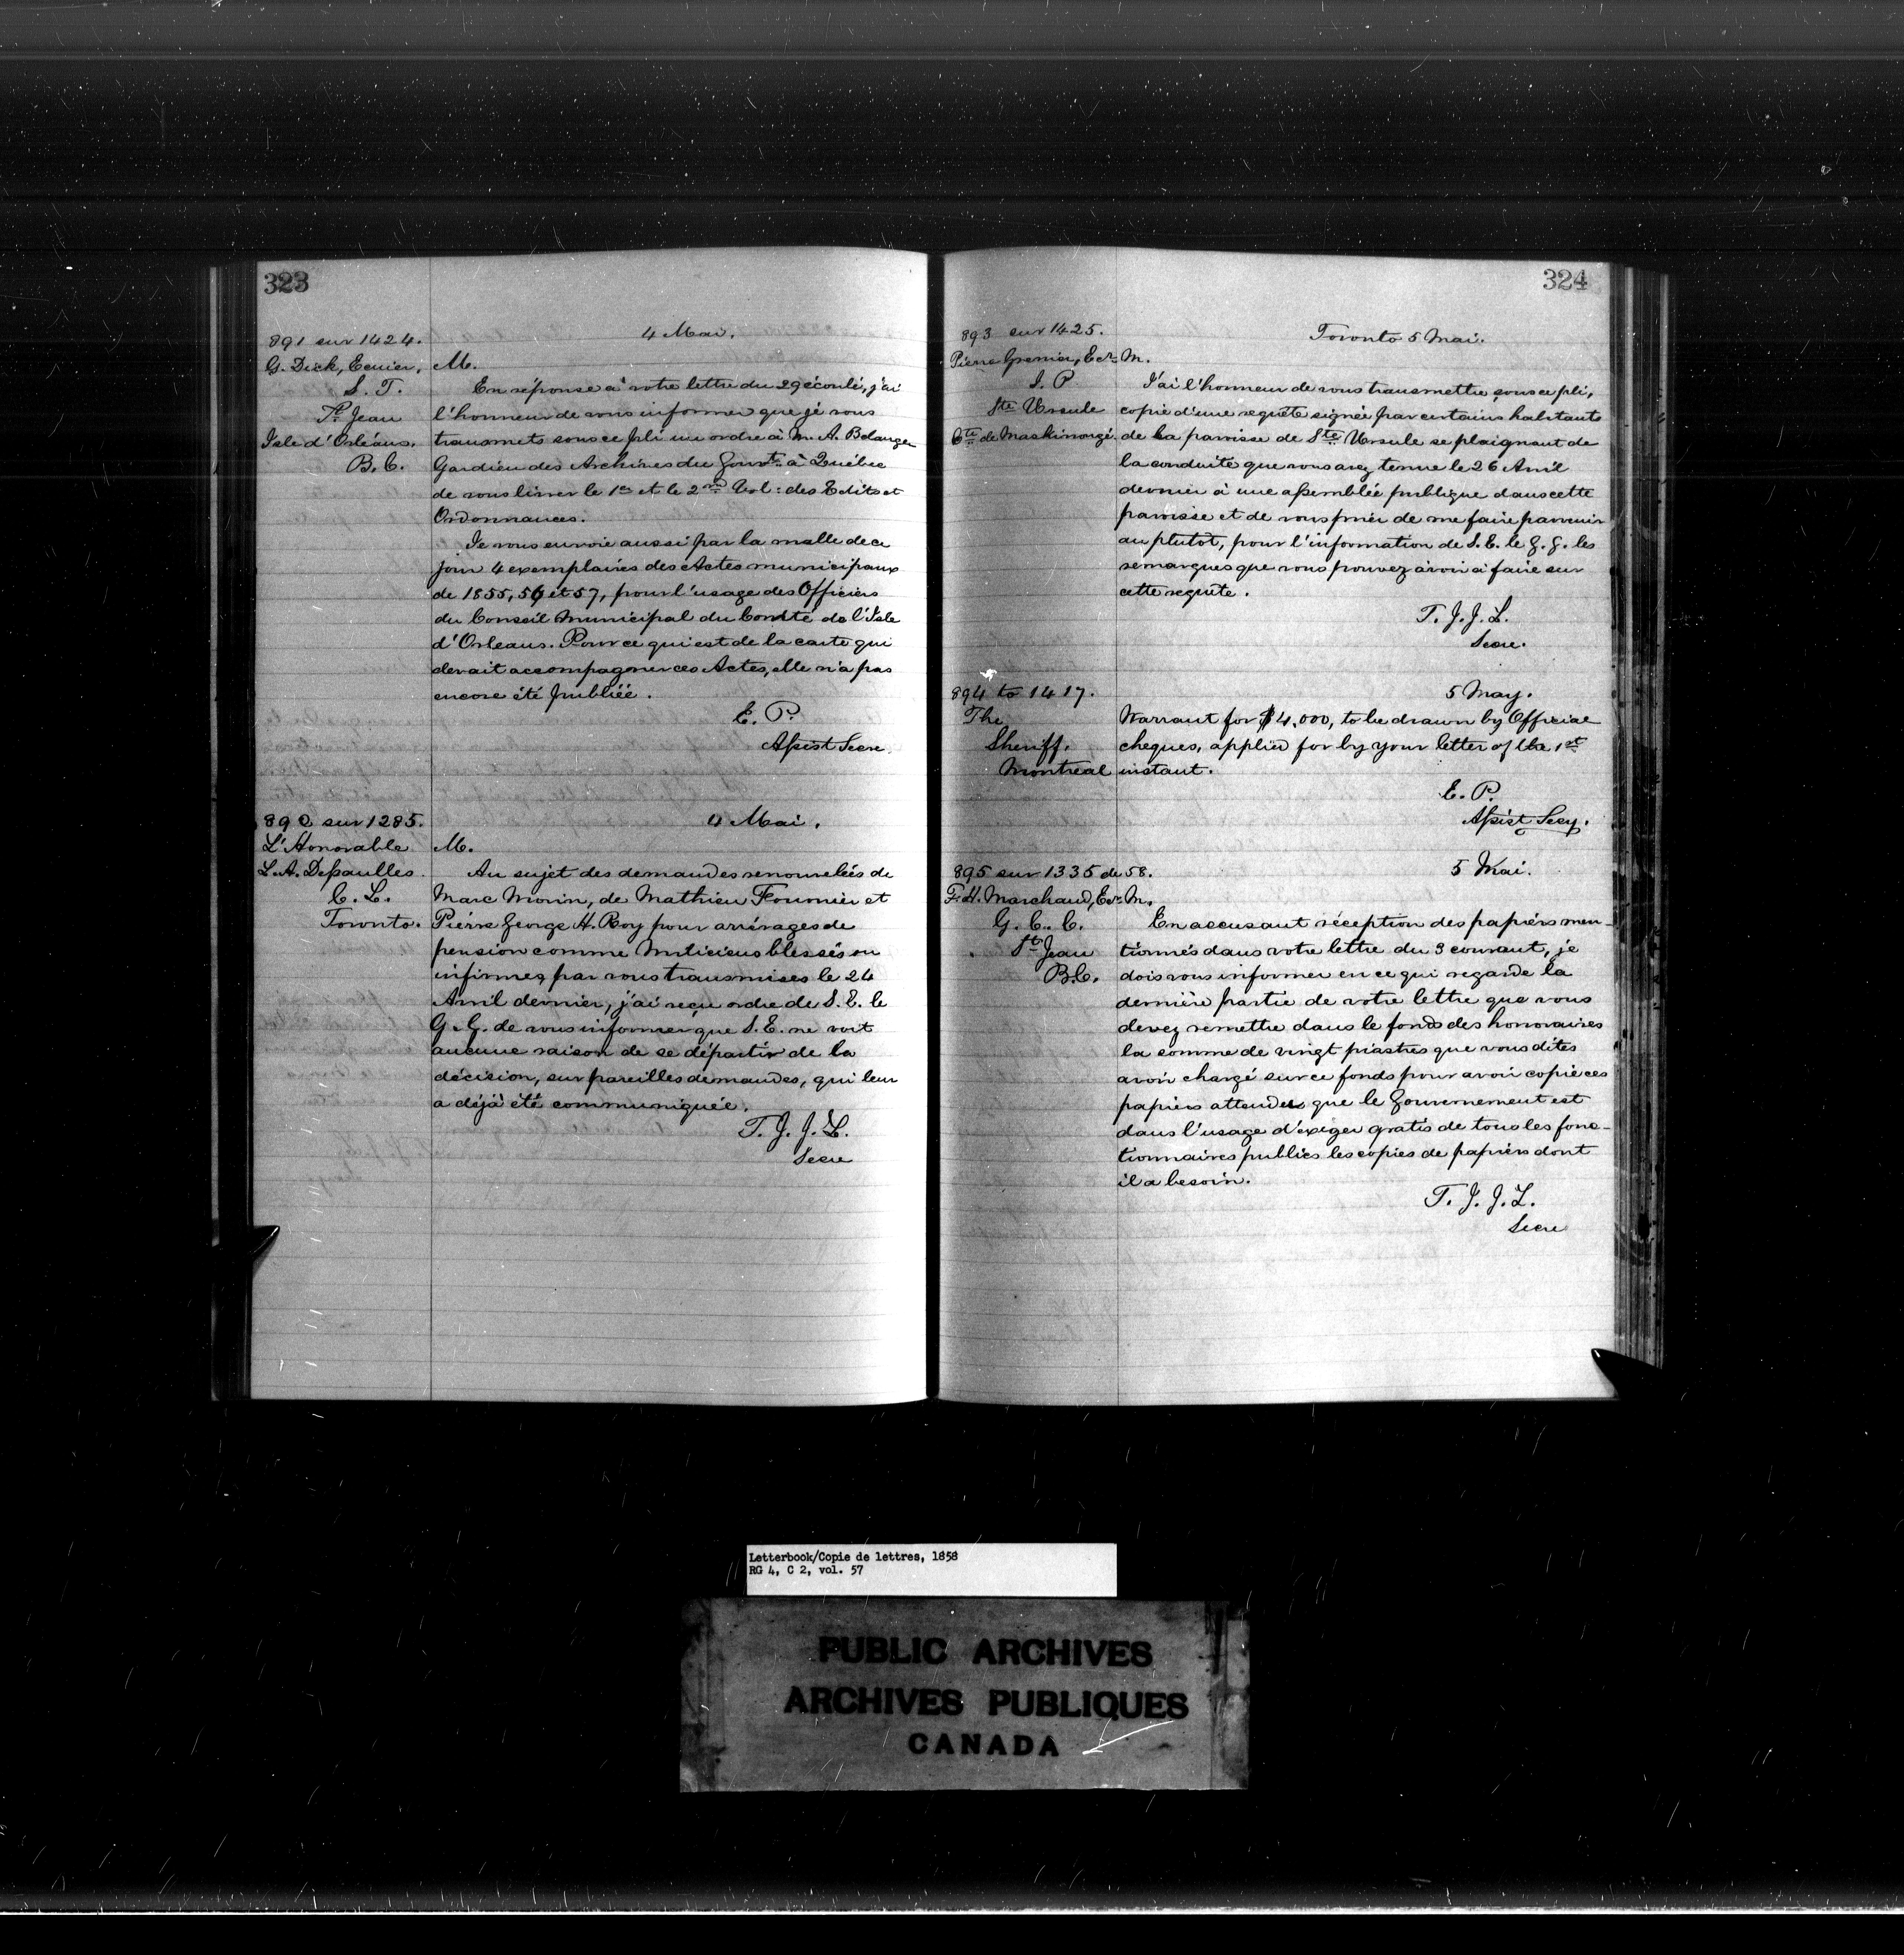 323
4 Mai.
891 sur 1424.
G. Dick, Ecuier,
S. T.
St. Jean
Isle d'Orléans.
B.C.
M.
En réponse à votre lettre du 29 écoulé, j'ai
l'honneur de vous informer que je vous
transmets sous ce pli un ordre à M. A. Belanger
Gardien des Archives du Gouvt. à Québec
de vous livrer le 1er et le 2nd Vol: des Edits et
Ordonnances.
Je vous envoie aussi par la malle de ce
jour 4 exemplaires des Actes municipaux
de 1855, 56 et 57, pour l'usage des Officiers
du Conseil Municipal du Comté de l'Isle
d'Orleans. Pour ce qui est de la carte qui
devait accompagner ces Actes, elle n'a pas
encore été publiée.
E. P.
Assist Secre.
892 sur 1285.
L'Honorable
L. A. Dessaulles.
C. L.
Toronto.
4 Mai.
M.
Au sujet des demandes renouvelées de
Marc Morin, de Mathieu Fournier et
Pièrre George H. Roy pour arrérages de
pension comme Miliciens blessés ou
infirmes, par vous transmises le 24
Avril dernier, j'ai reçu ordre de S. E. le
G. G. de vous informer que S. E. ne voit
aucune raison de se départir de la
décision, sur pareilles demandes, qui leur
a déjà été communiquée.
T. J. J. L.
Secre
324
893 sur 1425.
Pierre Grenier, Ecr.
J. P
Ste Ursule
Cté de Maskinongé.
Toronto 5 Mai.
M.
J'ai l'honneur de vous transmettre, sous ce pli,
copie d'une requête signée par certains habitants
de la paroisse de Ste Ursule se plaignant de
la conduite que vous avez tenue le 26 Avril
dernier à une assemblée publique dans cette
paroisse et de vous prier de me faire parvenir
au plutôt, pour l'information de S. E. le G. G. les
remarques que vous pouvez avoir à faire sur
cette requête.
T. J. J. L.
Secre.
894 to 1417.
The
Sheriff,
Montreal
5 May.
Warrant for $4,000, to be drawn by Official
cheques, applied for by your letter of the 1st
instant.
E. P.
Assist Secy.
895 sur 1335 de 58.
F. H. Marchand, Ecr.
G. C. C.
St. Jean
B.C.
5 Mai.
M.
En accusant réception des papiers men-
tionnés dans votre lettre du 3 courant, je
dois vous informer en ce qui regarde la
dernière partie de votre lettre que vous
devez remettre dans le fonds des honoraires
la somme de vingt piastres que vous dites
avoir chargé sur ce fonds pour avoir copié ces
papiers attendu que le Gouvernement est
dans l'usage d'exiger gratis de tous les fonc-
tionnaires publics les copies de papiers dont
il a besoin.
T. J. J. L.
Secre
Letterbook/Copie de lettres, 1858
RG 4, C 2, vol. 57
PUBLIC ARCHIVES
ARCHIVES PUBLIQUES
CANADA